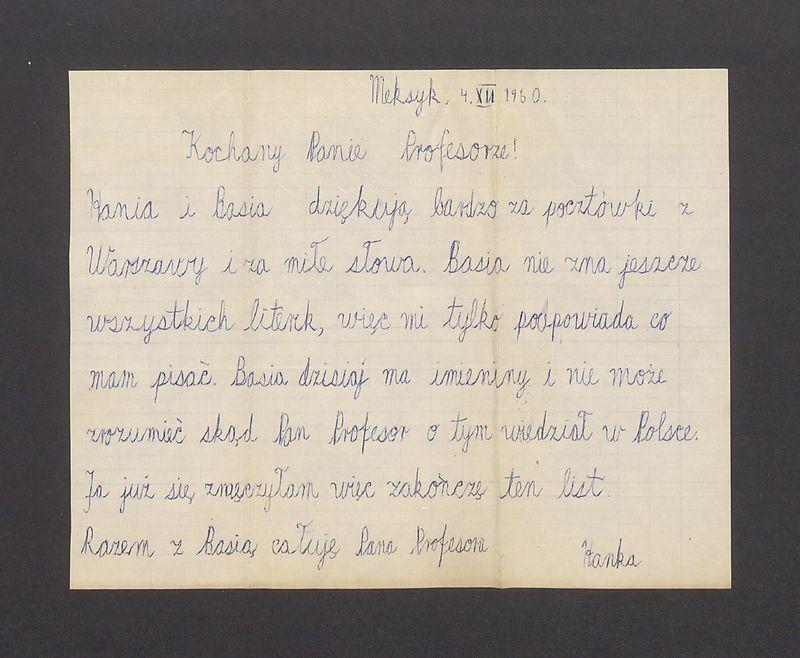 Meksyk, 4.XII 1960.
Kochany Panie Profesorze!
Hania i Basia dziękują bardzo za pocztówki z
Warszawy i za miłe słowa. Basia nie zna jeszcze
wszystkich literek, więc mi tylko podpowiada co
mam pisać. Basia dzisiaj ma imieniny i nie może
zrozumieć skąd Pan Profesor o tym wiedział w Polsce.
Ja już się zmęczyłam więc zakończę ten list.
Razem z Basią całuję Pana Profesora
Hanka